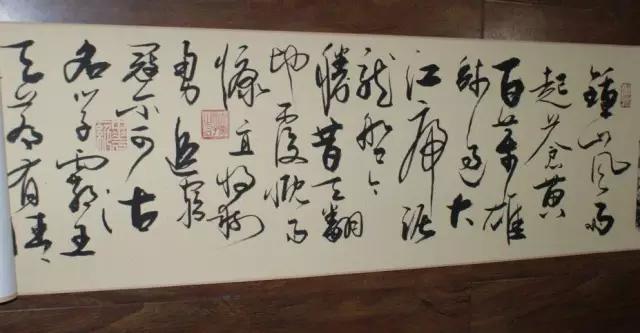 鍾山風雨
起蒼黄
百萬雄
師過大
江虎踞
龍盤今
勝昔天翻
地覆慨而
慷宜將剩
勇追窮
寇不可沽
名學霸王
天若有情